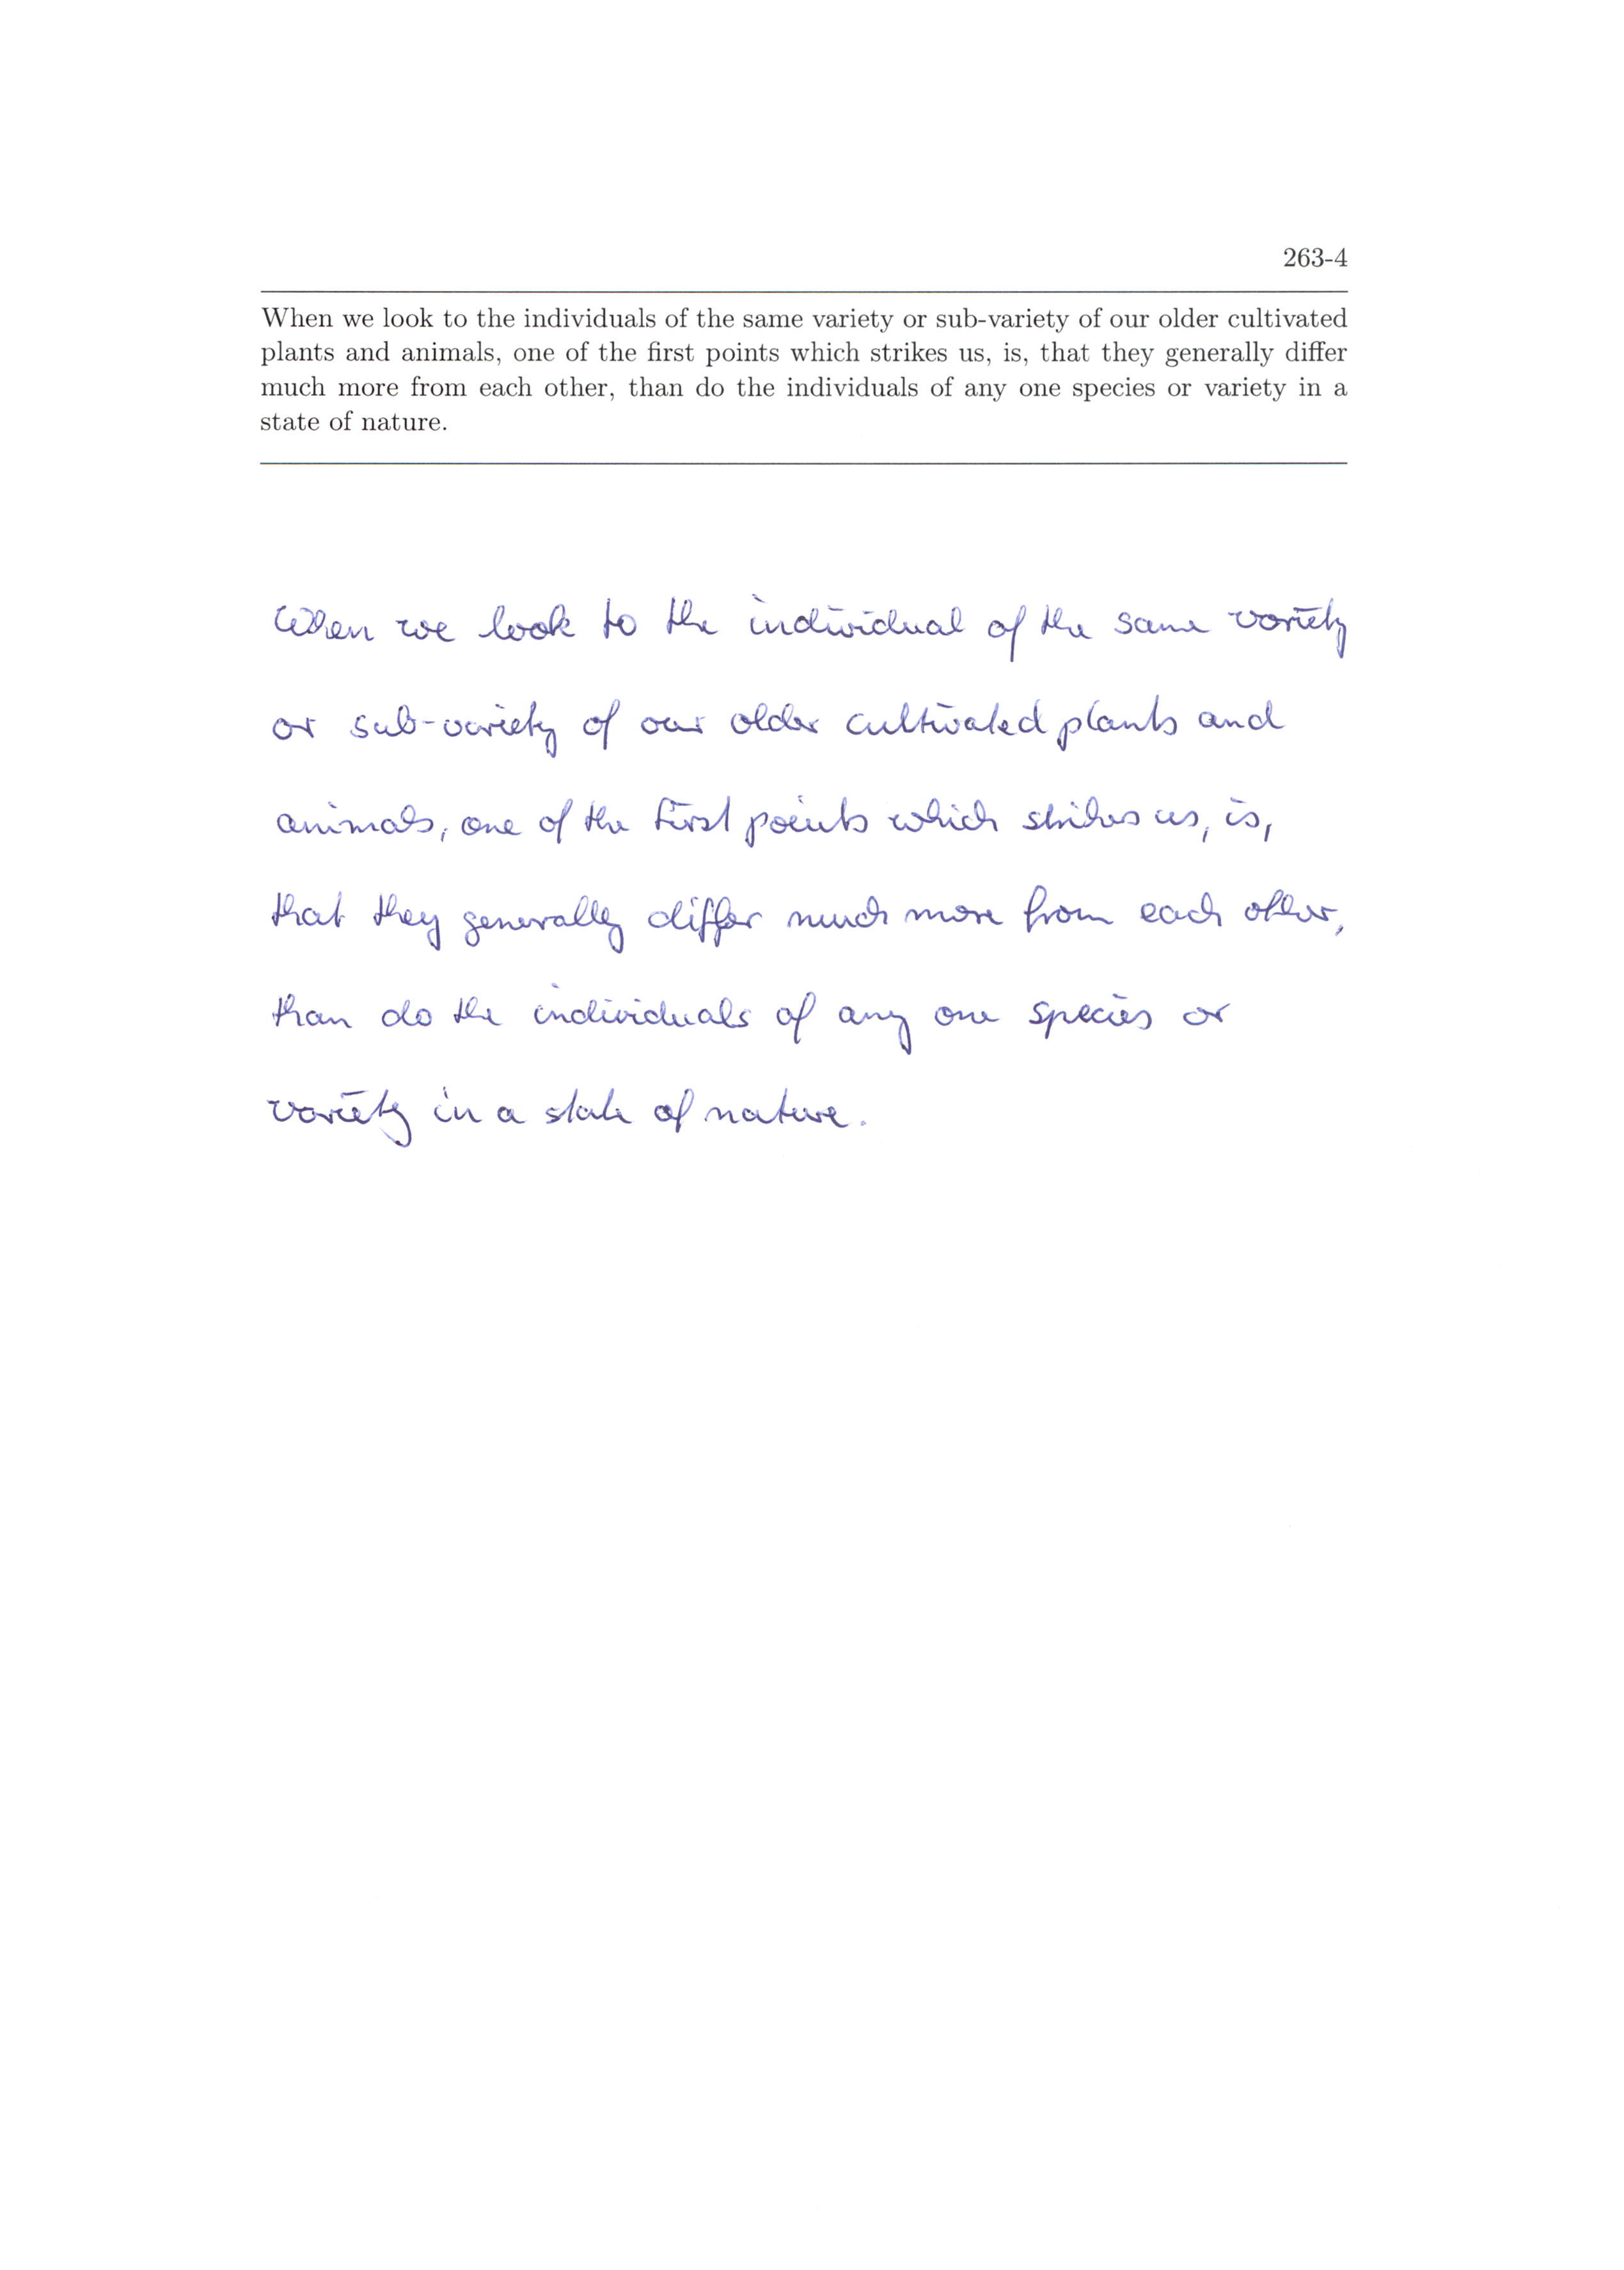 263-4
When we look to the individuals of the same variety or sub-variety of our older cultivated
plants and animals, one of the first points which strikes us, is, that they generally differ
much more from each other, than do the individuals of any one species or variety in a
state of nature.
When we look to the individual of the same variety
or sub-variety of our older cultivated plants and
animals, one of the first points which strikes us, is,
that they generally differ much more from each other,
than do the individuals of any one species or
variety in a state of nature.